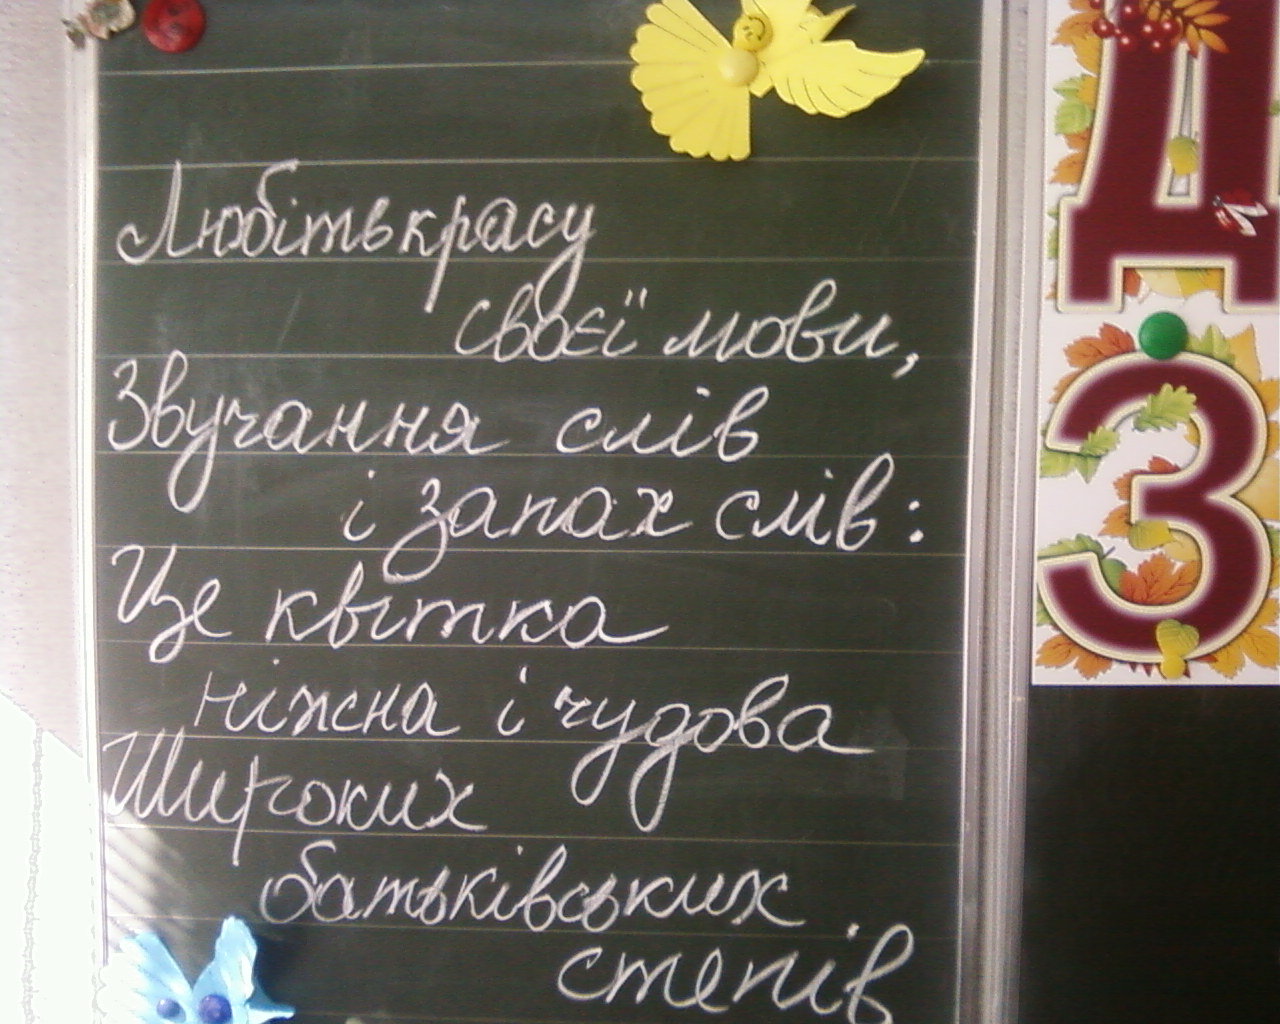 Любіть красу
своєї мови,
Звучання слів
і запах слів:
Це квітка
ніжна і чудова
Широких
батьківських
степів
Д
З